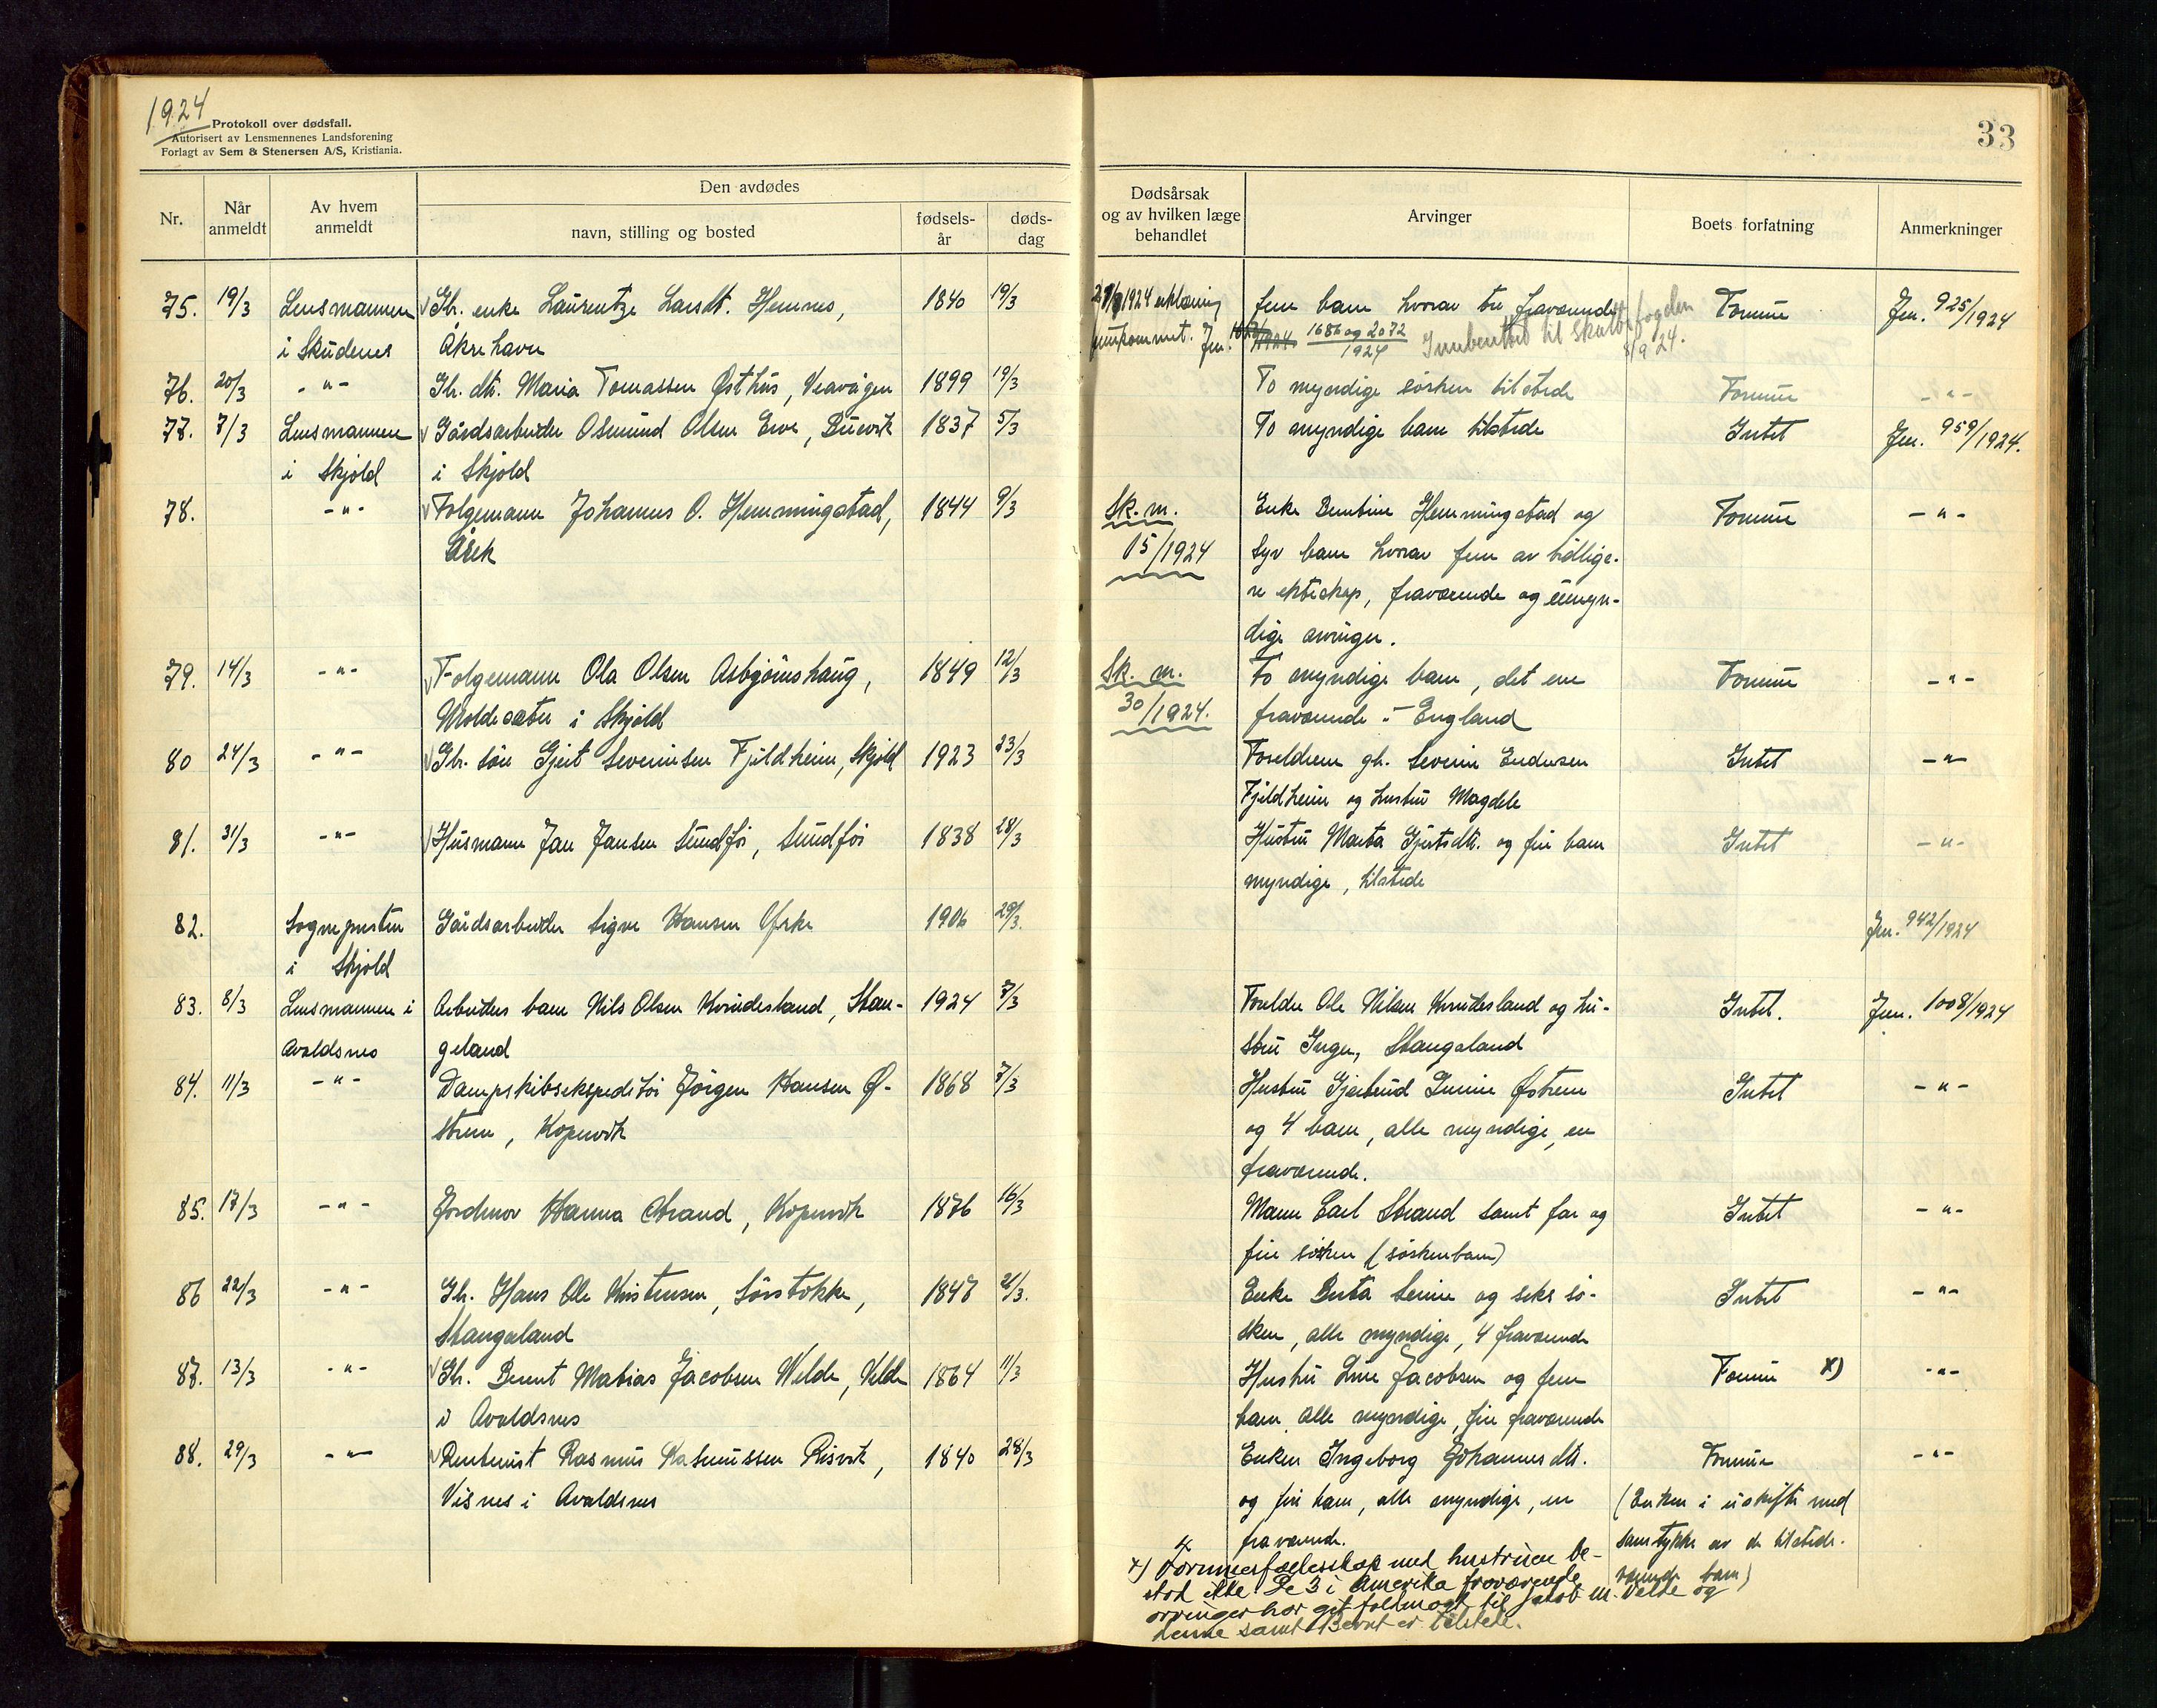 1924
Protokoll over dødsfall.
Autorisert av Lensmennenes Landsforening
Forlagt av Sem & Stenersen A/S, Kristiania.
Nr.
Når anmeldt
Av hvem anmeldt
Den avdødes
navn, stilling og bosted
fødsels-år
døds-dag
75. 19/3 Lensmannen Gh. enke Laurentze Larsdt. Hemnes, 1840 19/3
i Skudenes Åkrehavn
76. 20/3 -"- Gh. dtr. Maria Tomassen Østhus, Veavågen 1899 19/3
77. 7/3 Lensmannen Gårdsarbeider Osmund Olsen Erve, Buevik 1837 5/3
i Skjold i Skjold
78. -"- Folgemann Johannes O. Hemmingstad, 1844 9/3
79. 14/3 -"- Folgemann Ola Olsen Asbjørnshaug, 1849 12/3
Moldesæter i Skjold
80 24/3 -"- Gh. søn Gjert Severinsen Fjeldheim, Skjold 1923 23/3
81. 31/3 -"- Husmann Jan Jansen Sundfør, Sundfør 1838 28/3
82. Sognepresten Gårdsarbeider Signe Hansen 1906 29/3.
i Skjold
83. 8/3 Lensmannen i Arbeiders barn Nils Olsen Kvindesland, Stan- 1924 7/3
Avaldsnes geland
84. 11/3 -"- Dampskibsekspeditør Jørgen Hansen Ø- 1868 7/3
strem, Kopervik
85. 17/3 -"- Jordmor Hanna Strand, Kopervik 1876 16/3
86 22/3 -"- Gh. Hans Ole Kristensen, Sørstokke, 1847 21/3.
Stangeland
87. 13/3 -"- Gh. Bernt Matias Jacobsen Velde, Velde 1864 11/3
i Avaldsnes
88. 29/3 -"- Rentenist Rasmus Rasmussen Risvik, 1840 28/3
Visnes i Avaldsnes
33
Dødsårsak og av hvilken læge behandlet
Arvinger
Boets forfatning
Anmerkninger
1924 erklæring fem barn hvorav tre fraværende Formue Jnr. 925/1924
fremkommet. Jnr. 1686 og 2072/1924 Innberettet til Skattefogden 8/9 24.
To myndige søsken tilstede Formue -"-
To myndige barn tilstede Intet Jnr. 959/1924.
Sk. m. Enke Bentine Hemmingstad og Formue -"-
15/1924 syv barn hvorav fem av tidlige-
re ekteskap, fraværende og umyn-
dige arvinger.
Sk. m. To myndige barn, det ene Formue -"-
30/1924. fraværende i England
Foreldrene gh. Severin Endresen Intet -"-
Fjeldheim og hustru Magdele
Hustru Marta Gjertsdtr. og fire barn Intet -"-
myndige, tilstede
Jnr. 942/1924
Foreldre Ole Nilsen Kvindesland og hu- Intet. Jnr. 1008/1924
stru Inger, Stangeland
Hustru Gjertrud Østrem Intet -"-
og 4 barn, alle myndige, en
fraværende.
Mann Carl Strand samt far og Intet -"-
fire søsken (søskenbarn)
Enke Berta Serine og seks sø- Intet -"-
sken, alle myndige, 4 fraværende
Hustru Line Jacobsen og fem Formue x) -"-
barn alle myndige, fire fraværende
Enken Ingeborg Johannesdtr. Formue -"-
og fire barn, alle myndige, en (Enken i uskifte med
fraværende. samtykke av de tilstede-
værende barn)
x) Formuesfællesskap med hustruen be-
stod ikke. De 3 i Amerika fraværende
arvinger har git fuldmagt til Jakob M. Velde og
denne samt Bernt er tilstede.